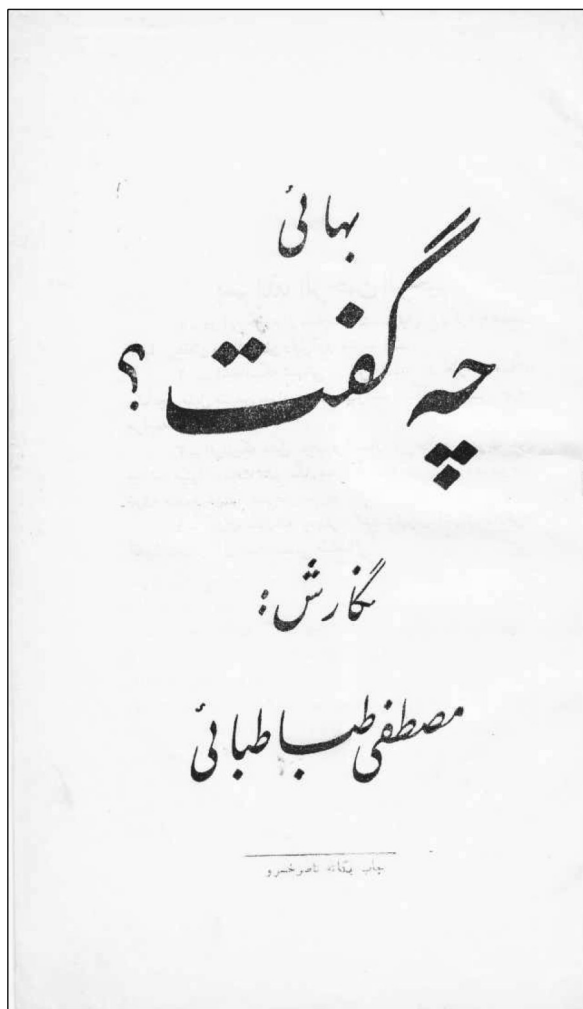 بهائی
چه گفت ؟
نگارش :
مصطفی طباطبائی
چاپ بوقانه ناصرخسرو